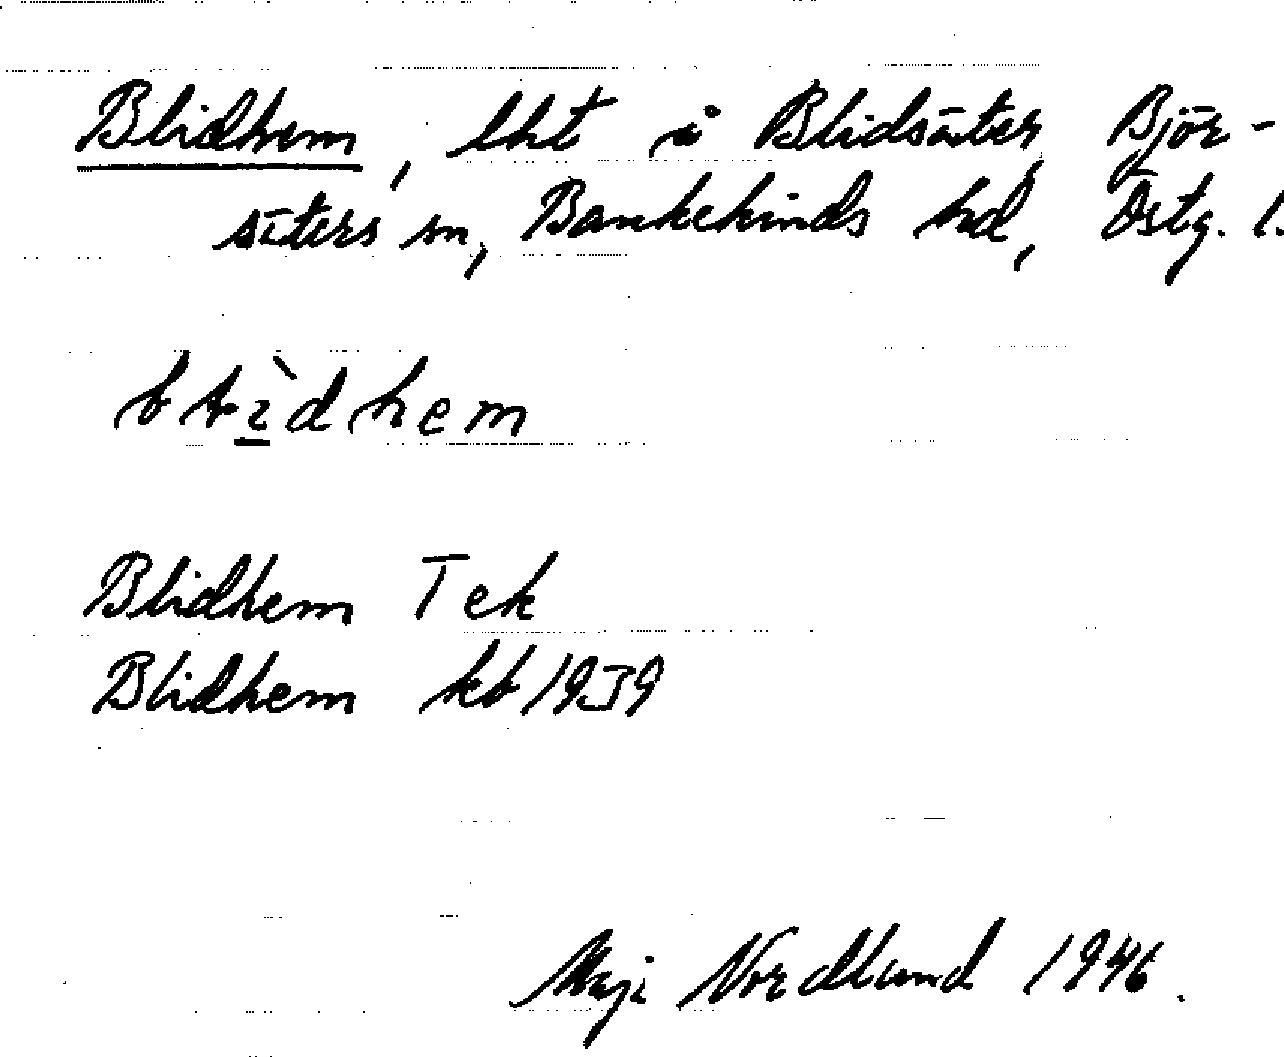 Blidhem, lht i Blidsäter, Björ-
säters sn, Bankekinds hd, Östg. l.
Blidhem Tek
Blidhem kb 1939
Maji Nordlund 1946.